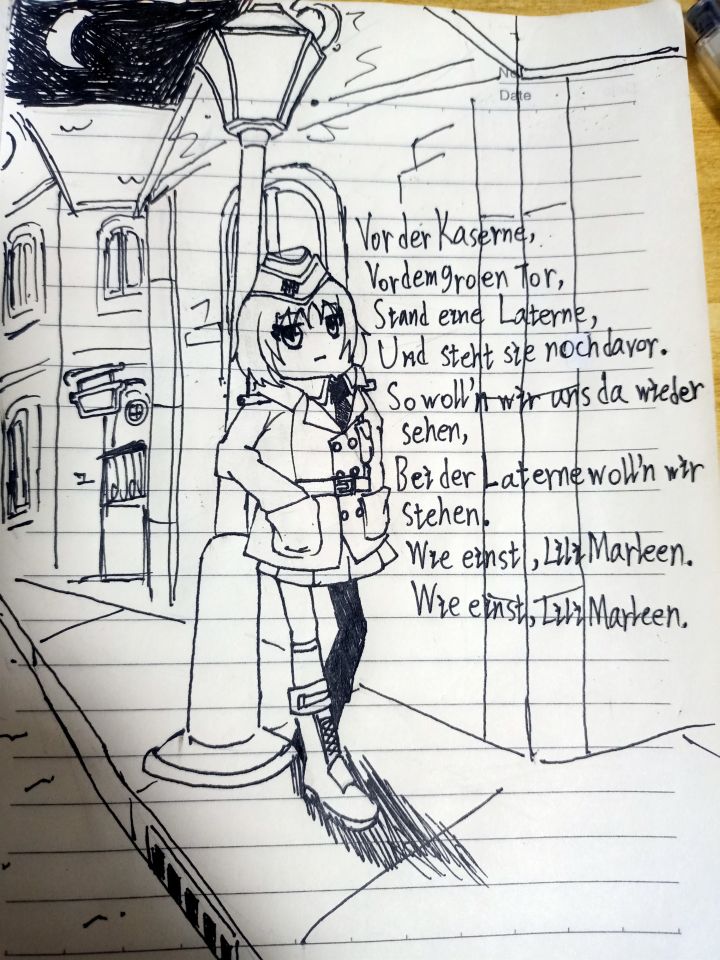 No.
Date
Vor der Kaserne,
Vor dem groen Tor,
Stand eine Laterne,
Und steht sie noch davor.
So woll'n wir uns da wieder
sehen,
Bei der Laterne woll'n wir
stehen.
Wie einst, Lili Marleen.
Wie einst, Lili Marleen.